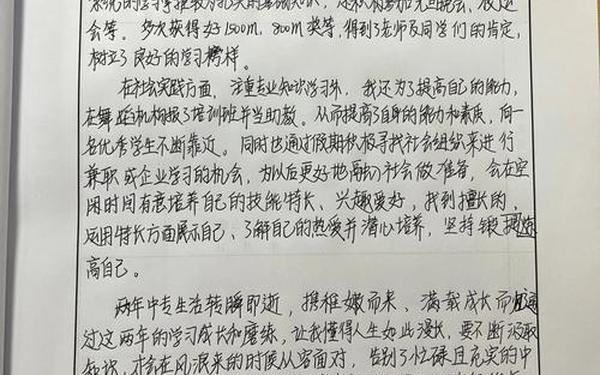 系统的学习掌握较为扎实的基础知识,还积极参加元旦晚会、校运
会等。多次获得好1500m,800m奖等,得到了老师及同学们的肯定,
树立了良好的学习榜样。
在社会实践方面,注重专业知识学习外,我还为了提高自己的能力,
在舞蹈机构报了培训班并当助教。从而提高了自身的能力和素质,向一
名优秀学生不断靠近。同时也通过假期积极寻找社会组织来进行
兼职或企业学习的机会,为以后更好地融入社会做准备,会在空
闲时间有意培养自己的技能特长、兴趣爱好,找到擅长的,
运用特长方面展示自己、了解自己的热爱并潜心培养,坚持锻炼提
高自己。
两年中专生活转瞬即逝,携稚嫩而来、满载成长而归通
过这两年的学习成长和磨练,让我懂得人生如此漫长,要不断汲取
知识,才会在风浪来的时候从容面对,告别了忙碌且充实的中